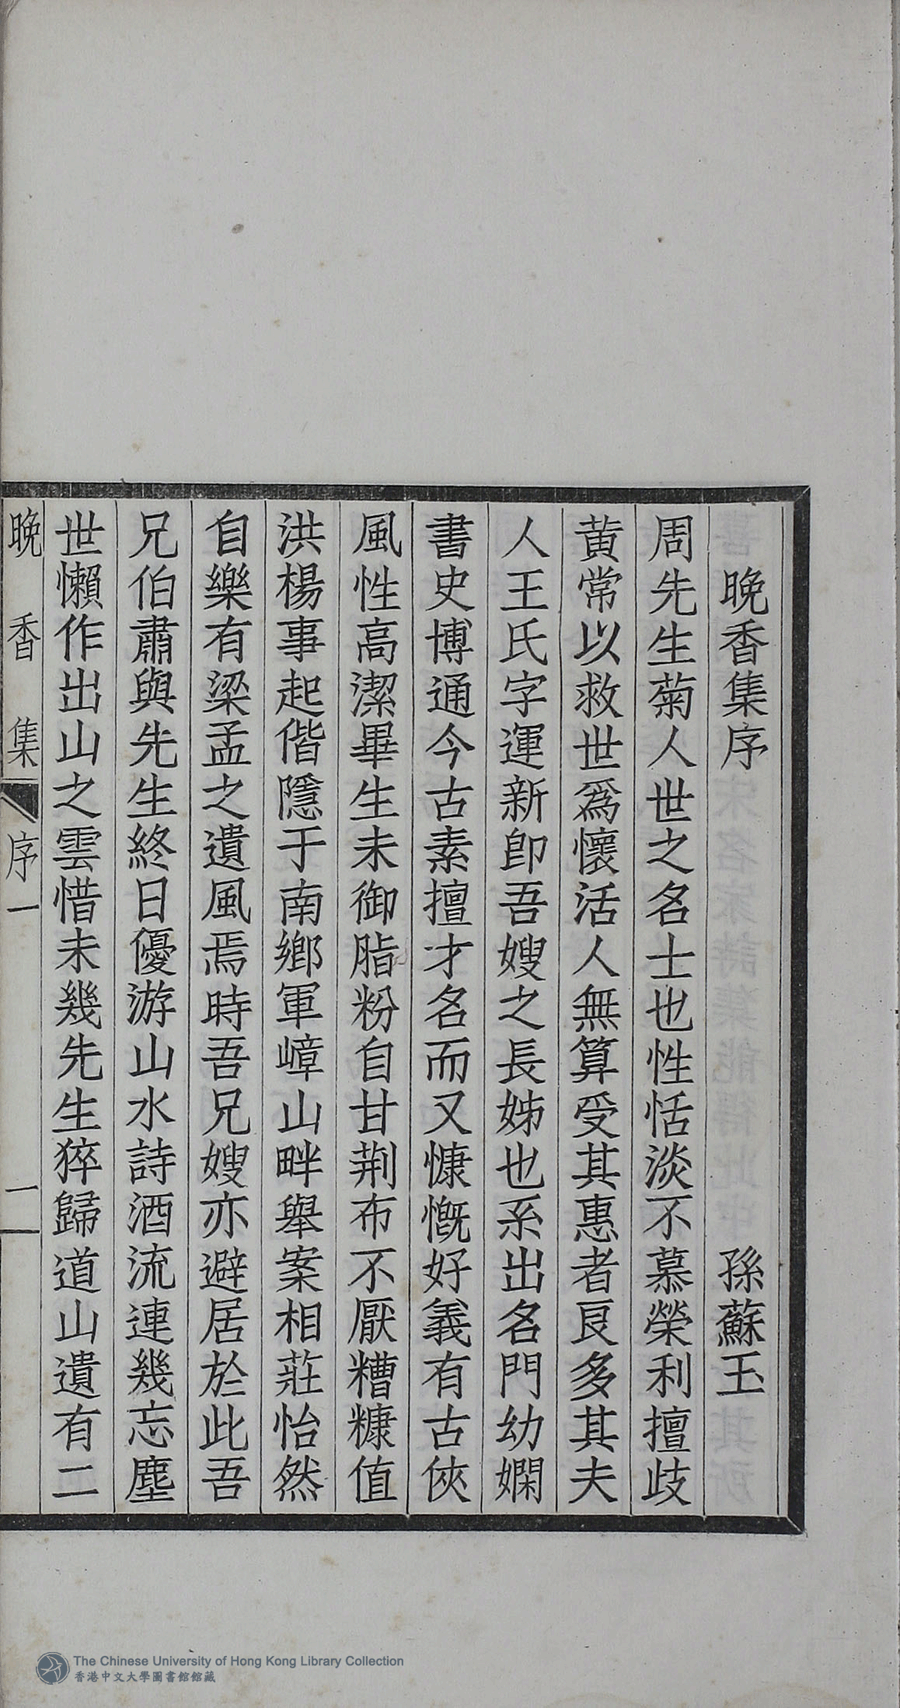 晚香集序 孫蘇玉
周先生菊人世之名士也性恬淡不慕榮利擅歧
黃常以救世爲懷活人無算受其惠者良多其夫
人王氏字運新卽吾嫂之長姊也系出名門幼嫻
書史博通今古素擅才名而又慷慨好義有古俠
風性高潔畢生未御脂粉自甘荆布不厭糟糠值
洪楊事起偕隱于南鄉軍嶂山畔舉案相莊怡然
自樂有梁孟之遺風焉時吾兄嫂亦避居於此吾
兄伯肅與先生終日優游山水詩酒流連幾忘塵
世懶作出山之雲惜未幾先生猝歸道山遺有二
晚香集 序一 一
The Chinese University of Hong Kong Library Collection
香港中文大學圖書館館藏